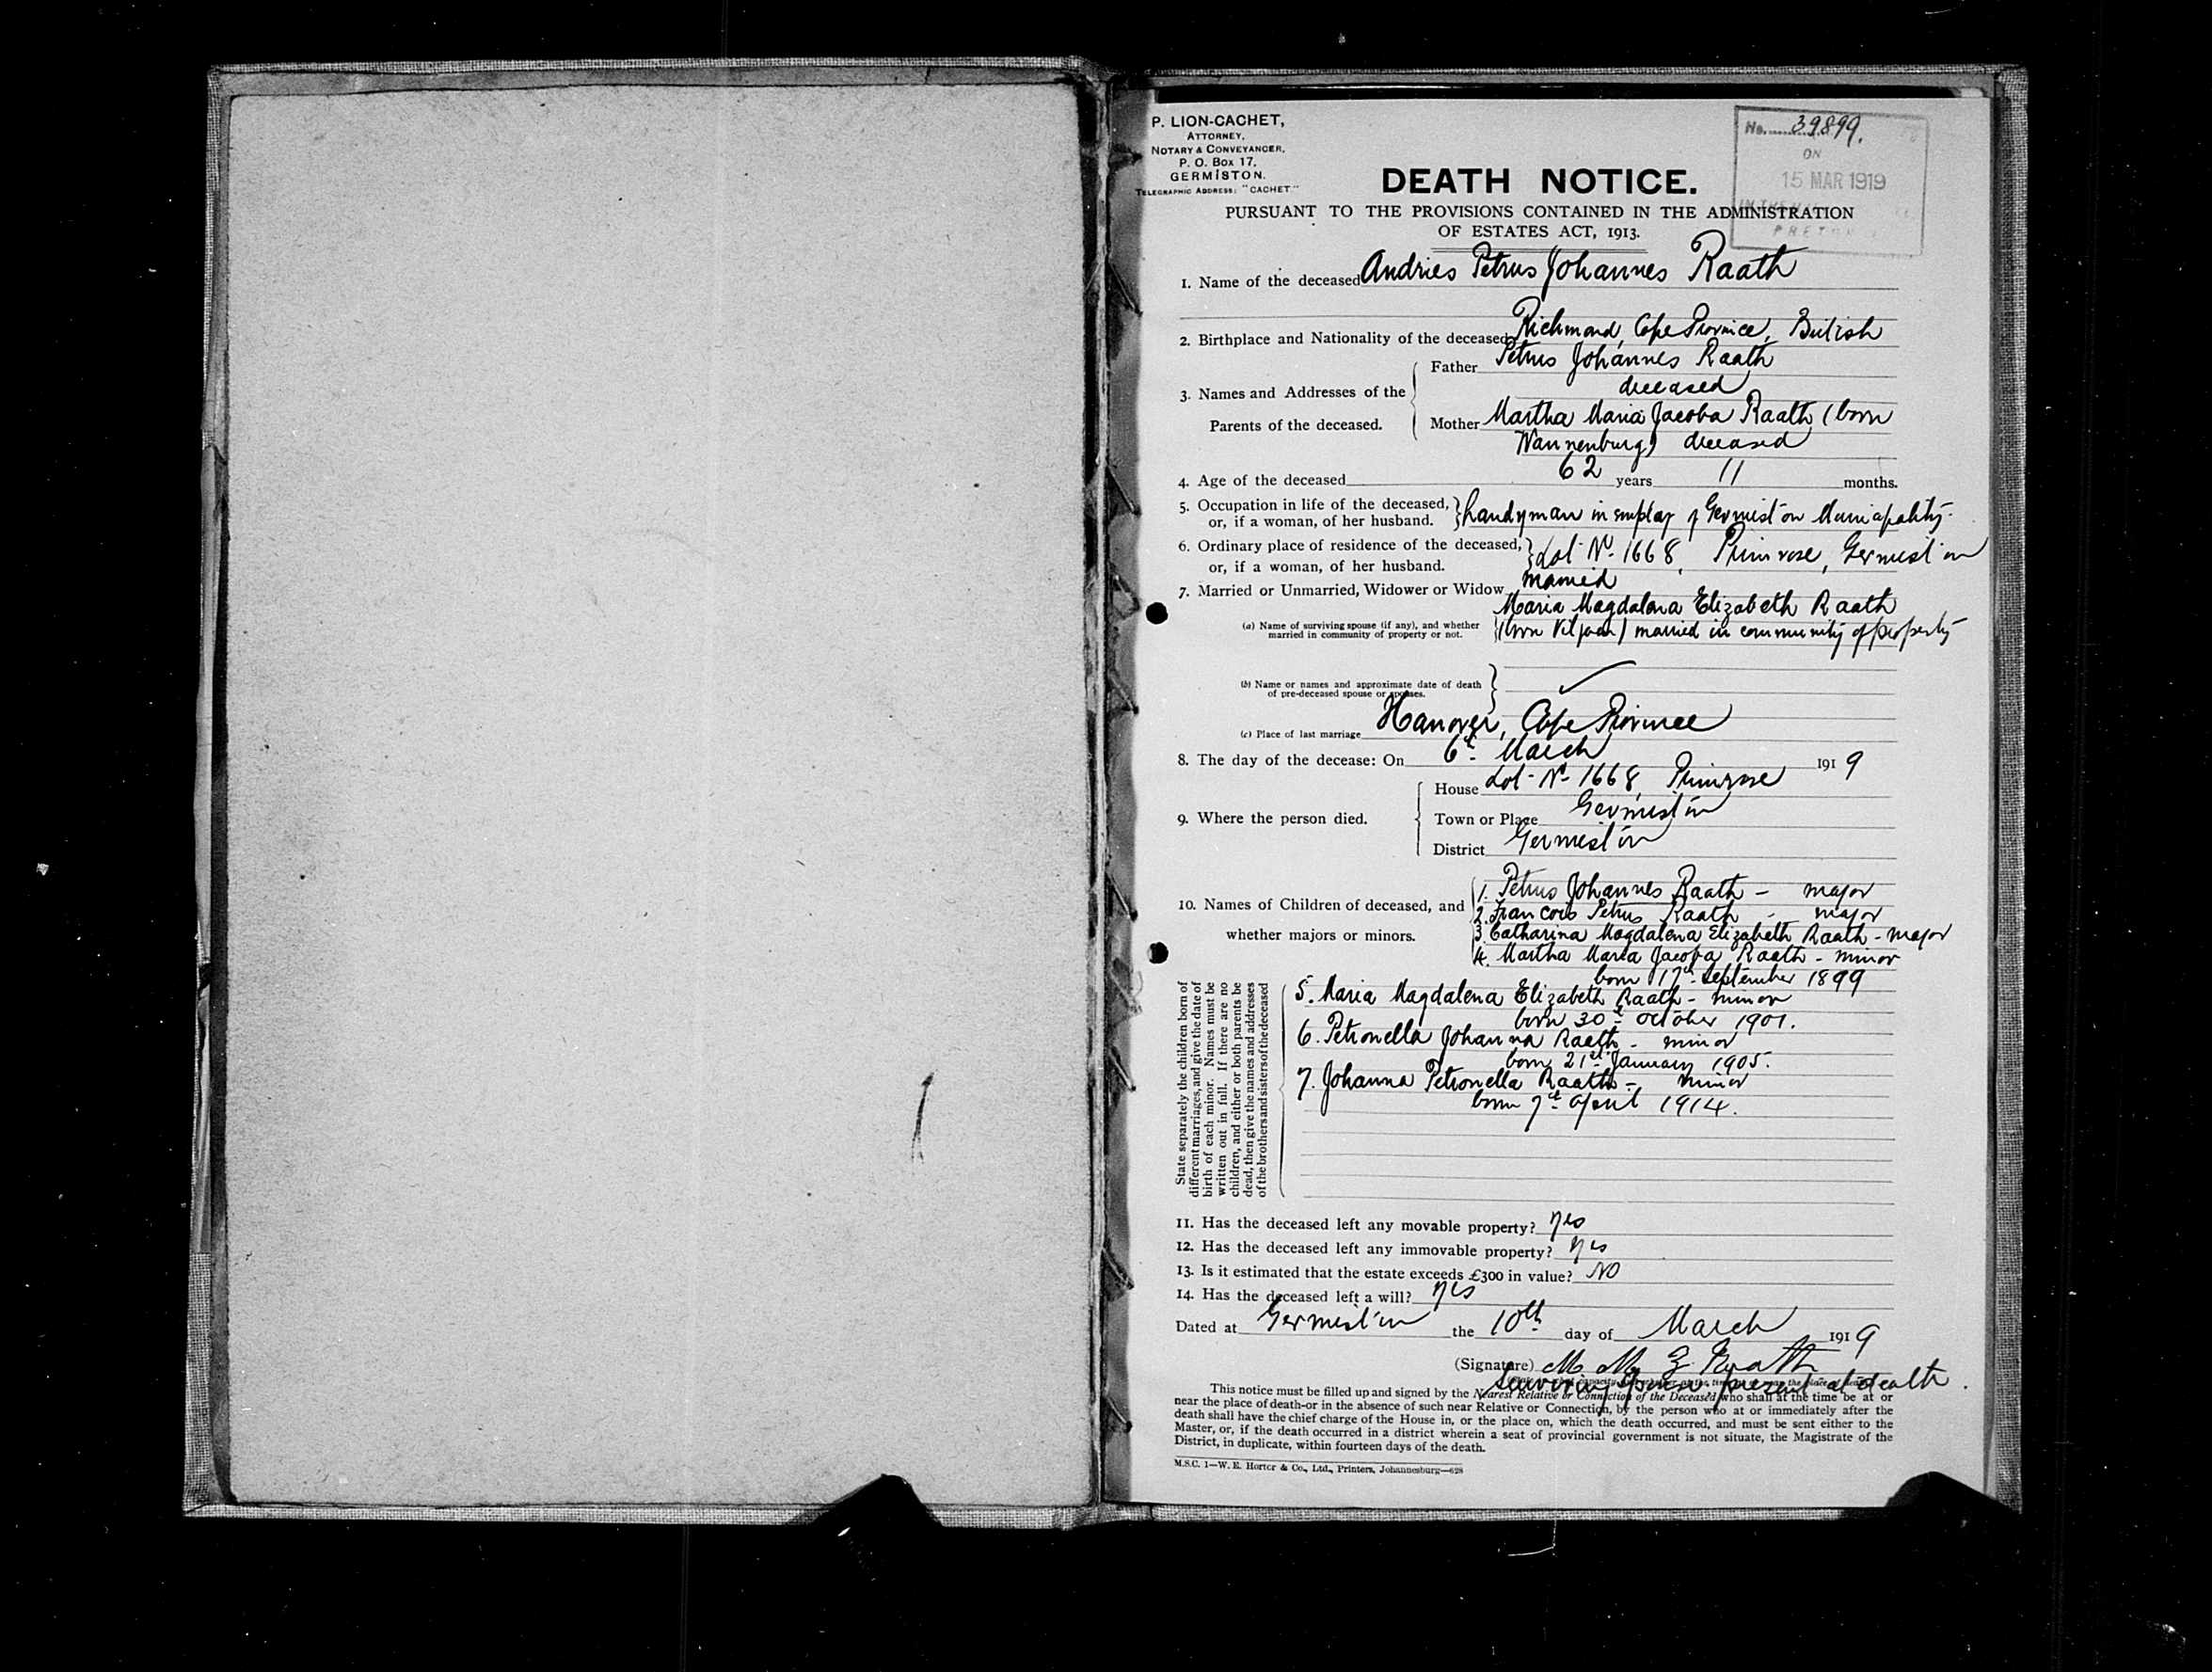 P. LION-CACHET,
ATTORNEY,
NOTARY & CONVEYANCER,
P. O. Box 17,
GERMISTON.
TELEGRAPHIC ADDRESS: "CACHET"
No. 39899.
ON
15 MAR 1919
DEATH NOTICE.
PURSUANT TO THE PROVISIONS CONTAINED IN THE ADMINISTRATION
OF ESTATES ACT, 1913.
1. Name of the deceased Andries Petrus Johannes Raath
2. Birthplace and Nationality of the deceased Richmond, Cape Province, British
3. Names and Addresses of the Parents of the deceased.
Father Petrus Johannes Raath
deceased
Mother Martha Maria Jacoba Raath (born
Wannenburg) deceased
4. Age of the deceased 62 years 11 months.
5. Occupation in life of the deceased,
or, if a woman, of her husband. handyman in employ of Germiston Municipality
6. Ordinary place of residence of the deceased,
or, if a woman, of her husband. Lot No. 1668, Primrose, Germiston
7. Married or Unmarried, Widower or Widow married
(a) Name of surviving spouse (if any), and whether
married in community of property or not.
Maria Magdalena Elizabeth Raath
(born Viljoen) married in community of property
(b) Name or names and approximate date of death
of pre-deceased spouse or spouses.
(c) Place of last marriage Hanover, Cape Province
8. The day of the decease: On 6th March 1919
9. Where the person died.
House Lot No 1668, Primrose
Town or Place Germiston
District Germiston
10. Names of Children of deceased, and
whether majors or minors.
1. Petrus Johannes Raath - major
2. Francois Petrus Raath - major
3. Catharina Magdalena Elizabeth Raath - major
4. Martha Maria Jacoba Raath - minor
born 17th September 1899
5. Maria Magdalena Elizabeth Raath - minor
born 30th October 1901.
6. Petronella Johanna Raath - minor
born 21st January 1905.
7. Johanna Petronella Raath - minor
born 7th April 1914.
State separately the children born of
different marriages, and give the date of
birth of each minor. Names must be
written out in full. If there are no
children, and either or both parents be
dead, then give the names and addresses
of the brothers and sisters of the deceased
11. Has the deceased left any movable property? Yes
12. Has the deceased left any immovable property? Yes
13. Is it estimated that the estate exceeds £300 in value? NO
14. Has the deceased left a will? Yes
Dated at Germiston the 10th day of March 1919
(Signature) M M E Raath
Surviving Spouse present at death.
This notice must be filled up and signed by the Nearest Relative or Connection of the Deceased who shall at the time be at or
near the place of death-or in the absence of such near Relative or Connection, by the person who at or immediately after the
death shall have the chief charge of the House in, or the place on, which the death occurred, and must be sent either to the
Master, or, if the death occurred in a district wherein a seat of provincial government is not situate, the Magistrate of the
District, in duplicate, within fourteen days of the death.
M.S.C. 1—W. E. Hortor & Co., Ltd., Printers, Johannesburg—628